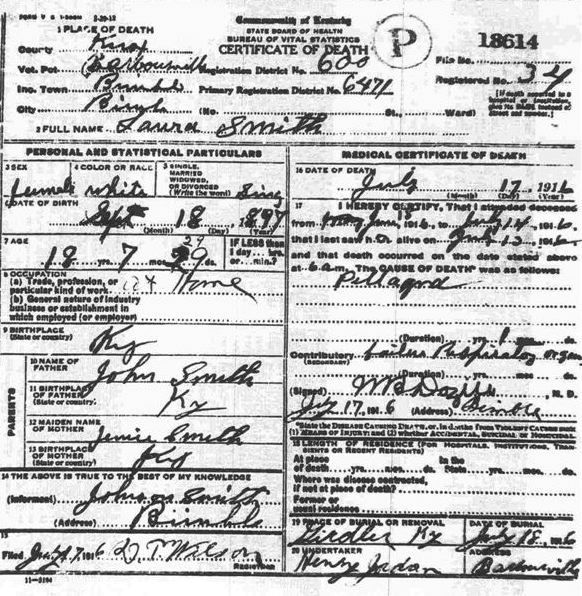 FORM V S 1-200M 3-20-12
Commonwealth of Kentucky
STATE BOARD OF HEALTH
BUREAU OF VITAL STATISTICS
CERTIFICATE OF DEATH
P
File No. 18614
1 PLACE OF DEATH
County Knox
Vot. Pct. Barbourville Registration District No. 600
Registered No. 34
Inc. Town Bimble Primary Registration District No. 6471
[If death occurred in a hospital or institution, give its NAME instead of street and number.]
City (No. St., Ward)
2 FULL NAME Laura Smith
PERSONAL AND STATISTICAL PARTICULARS
3 SEX female
4 COLOR OR RACE white
5 SINGLE, MARRIED WIDOWED, OR DIVORCED (Write the word) Sing
6 DATE OF BIRTH Sept 18 1897
(Month) (Day) (Year)
7 AGE 18 yrs. 7 mos. 29 ds.
IF LESS than 1 day ... hrs. or ... min.?
8 OCCUPATION
(a) Trade, profession, or particular kind of work At Home
(b) General nature of industry business or establishment in which employed (or employer)
9 BIRTHPLACE (State or country) Ky
PARENTS
10 NAME OF FATHER John Smith
11 BIRTHPLACE OF FATHER (State or country) Ky
12 MAIDEN NAME OF MOTHER Jenie Smith
13 BIRTHPLACE OF MOTHER (State or country) Ky
14 THE ABOVE IS TRUE TO THE BEST OF MY KNOWLEDGE
(Informant) John Smith
(Address) Bimble
15
Filed July 17, 1916 Wilson REGISTRAR
11-3184
MEDICAL CERTIFICATE OF DEATH
16 DATE OF DEATH July 17, 1916
(Month) (Day) (Year)
17 I HEREBY CERTIFY, That I attended deceased
from June 15 1916, to July 14, 1916,
that I last saw h alive on 13, 1916
and that death occurred on the date stated above
at 6 am. The CAUSE OF DEATH* was as follows:
Pellagra
(Duration) yrs. mos. ds.
Contributory (SECONDARY) failure Respiratory organ
(Duration) yrs. mos. ds.
(Signed) M. D.
July 17, 1916 (Address) Bimble
*State the DISEASE CAUSING DEATH, or, in deaths from VIOLENT CAUSES state (1) MEANS OF INJURY; and (2) whether ACCIDENTAL, SUICIDAL or HOMICIDAL.
18 LENGTH OF RESIDENCE (FOR HOSPITALS, INSTITUTIONS, TRANSIENTS OR RECENT RESIDENTS)
At place of death yrs. mos. ds. In the State yrs. mos. ds.
Where was disease contracted, if not at place of death?
Former or usual residence
19 PLACE OF BURIAL OR REMOVAL Ky
DATE OF BURIAL July 18, 1916
20 UNDERTAKER Henry Jordan
ADDRESS Barbourville